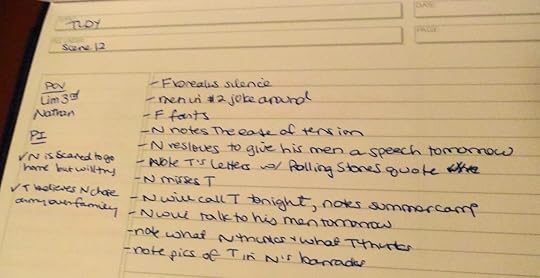 TLDY
DATE
Scene 12
PAGE
POV
Lim 3rd
Nathan
PI
✓ N is scared to go
home but will try
✓ T believes N chose
army over family
- F breaks silence
- men in #2 joke around
- F farts
- N notes The ease of tension
- N resloves to give his men a speech tomorrow
- Note T's letters w/ Rolling Stones quote
- N misses T
- N will call T tonight, notes summer camp
- N will talk to his men tomorrow
- note what N thinks + what T thinks
- note pics of T in N's barracks